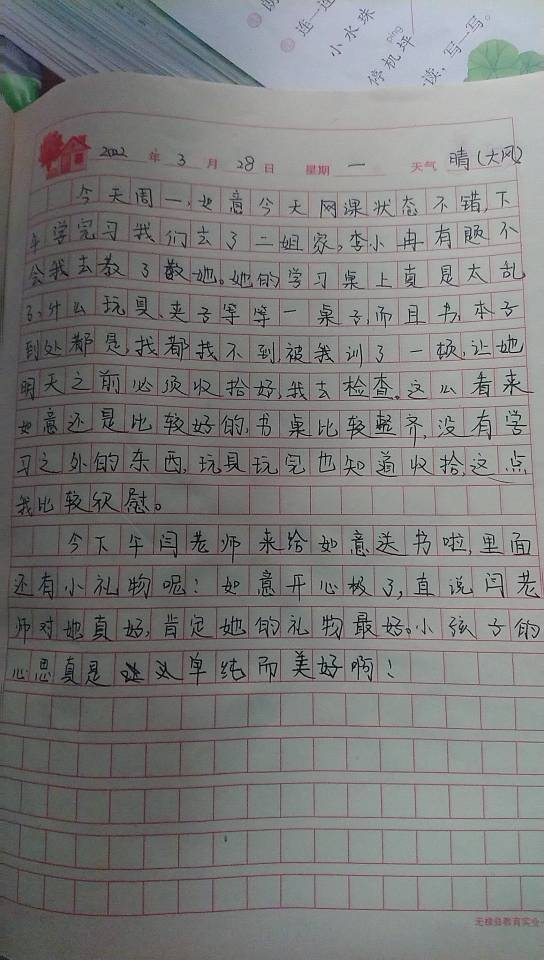 连一连
小水珠
píng
停机坪
读,写一写。
2022 年 3 月 28 日 星期 一 天气 晴(大风)
今天周一,如意今天网课状态不错,下
午学完习我们去了二姐家,李小冉有题不
会我去教了教她。她的学习桌上真是太乱
了,什么玩具、夹子等等一桌子,而且书,本子
到处都是,找都找不到,被我训了一顿,让她
明天之前必须收拾好,我去检查。这么看来
如意还是比较好的,书桌比较整齐,没有学
习之外的东西,玩具玩完也知道收拾,这点
我比较欣慰。
今下午闫老师来给如意送书啦,里面
还有小礼物呢!如意开心极了,直说闫老
师对她真好,肯定她的礼物最好。小孩子的
心思真是单纯而美好啊!
无棣县教育实业